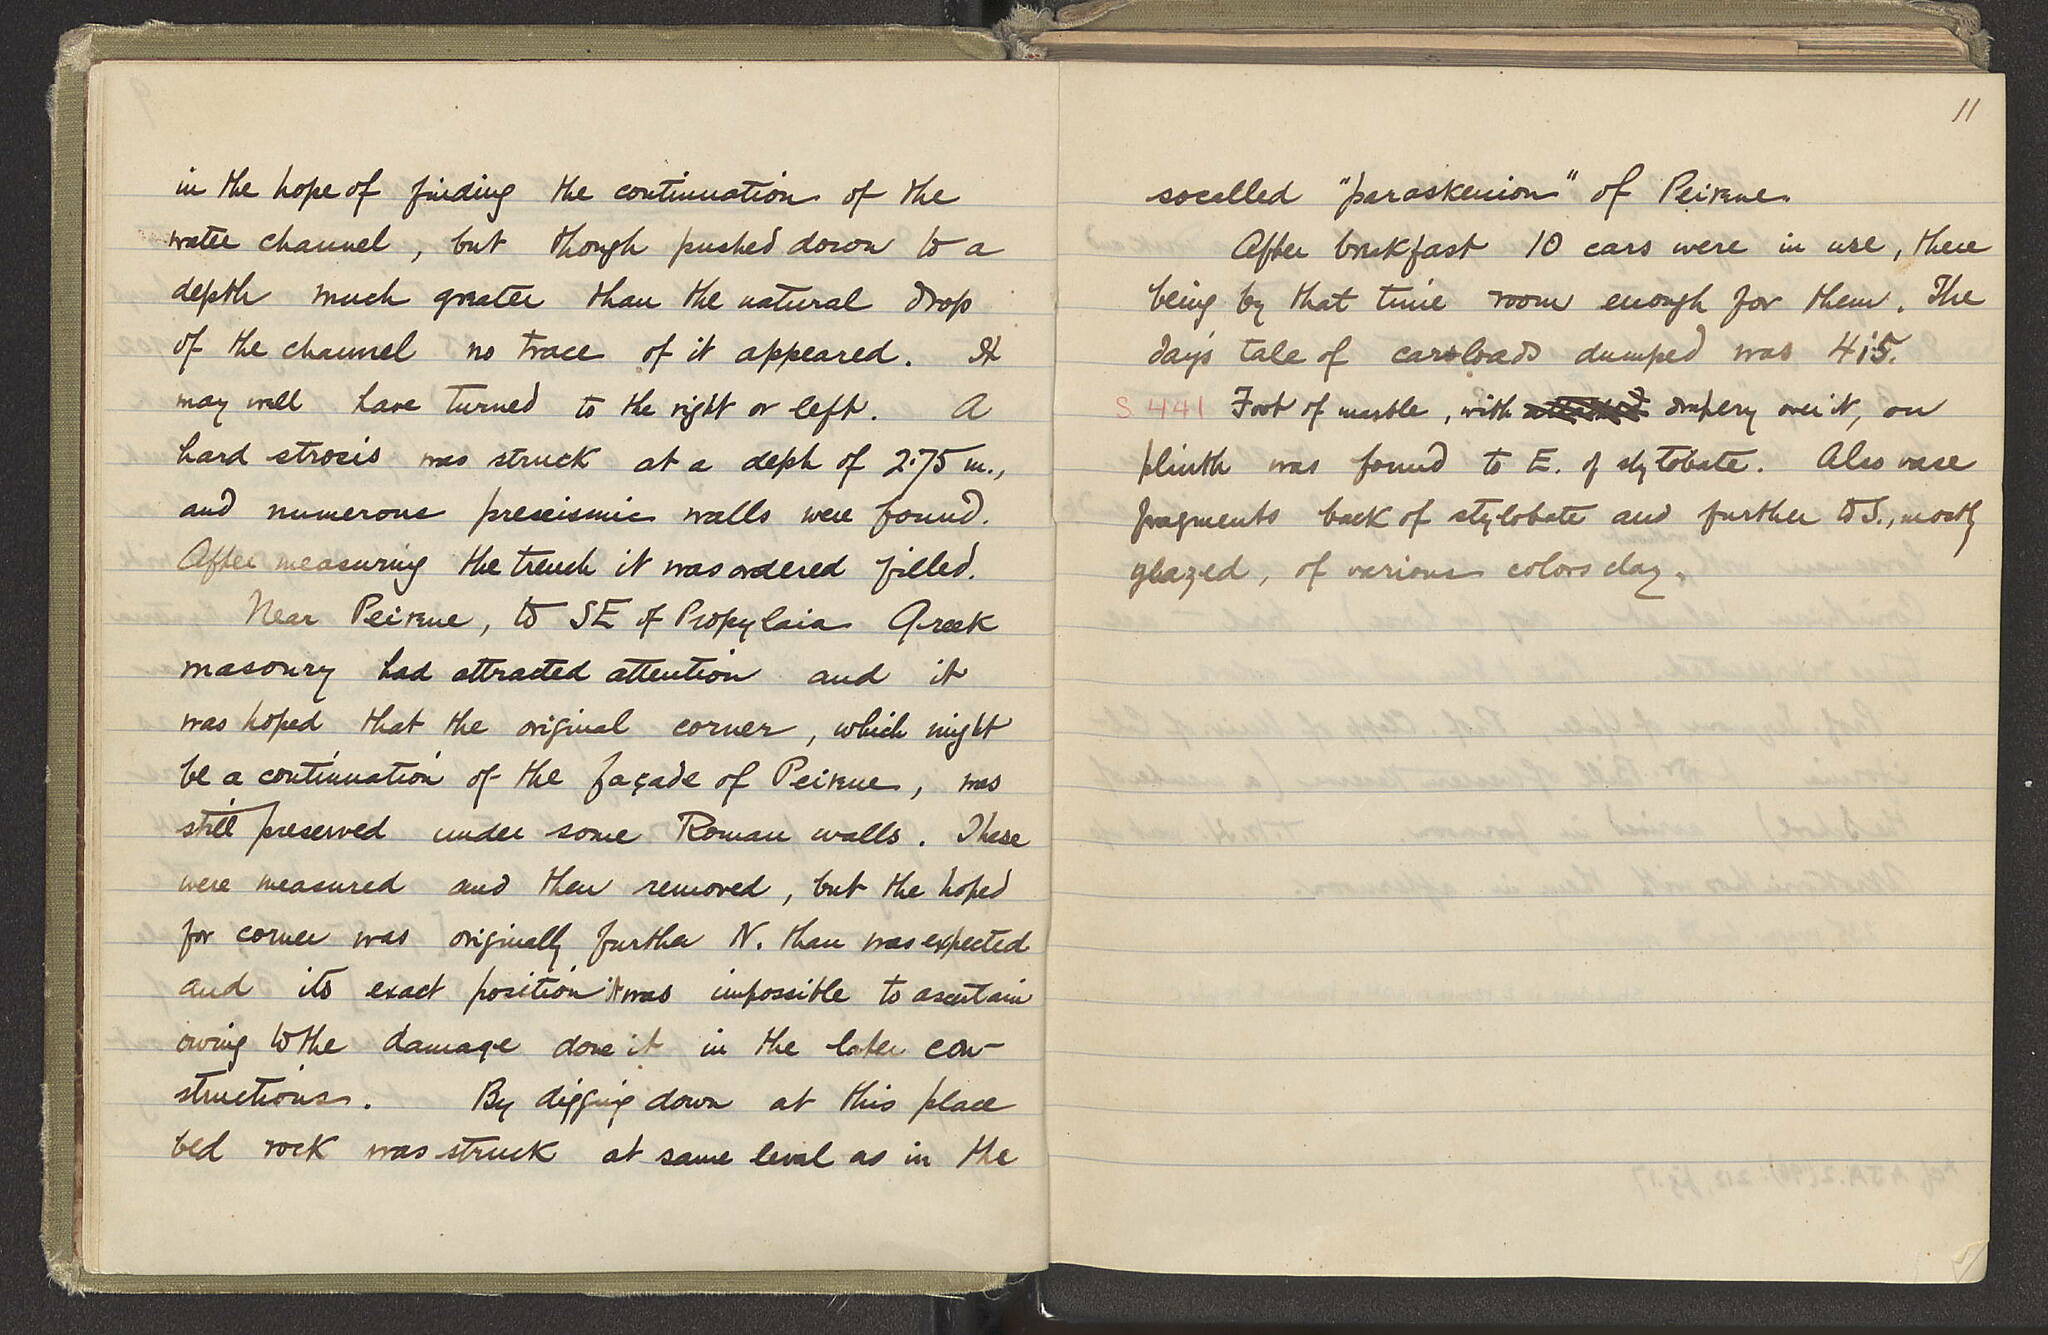 in the hope of finding the continuation of the
water channel, but though pushed down to a
depth much greater than the natural drop
of the channel no trace of it appeared. It
may well have turned to the right or left. A
hard strosis was struck at a deph of 2.75 m.,
and numerous preseismic walls were found.
After measuring the trench it was ordered filled.
Near Peirene, to SE of Propylaia Greek
masonry had attracted attention and it
was hoped that the original corner, which might
be a continuation of the façade of Peirene, was
still preserved under some Roman walls. These
were measured and then removed, but the hoped
for corner was originally further N. than was expected
and its exact position it was impossible to ascertain
owing to the damage done it in the later con-
structions. By digging down at this place
bed rock was struck at same level as in the
11
socalled "paraskenion" of Peirene.
After brekfast 10 cars were in use, there
being by that time room enough for them. The
day's tale of carloads dumped was 415.
S 441 Foot of marble, with drapery over it, on
plinth was found to E. of stylobate. Also vase
fragments back of stylobate and further to S., mostly
glazed, of various colors clay.